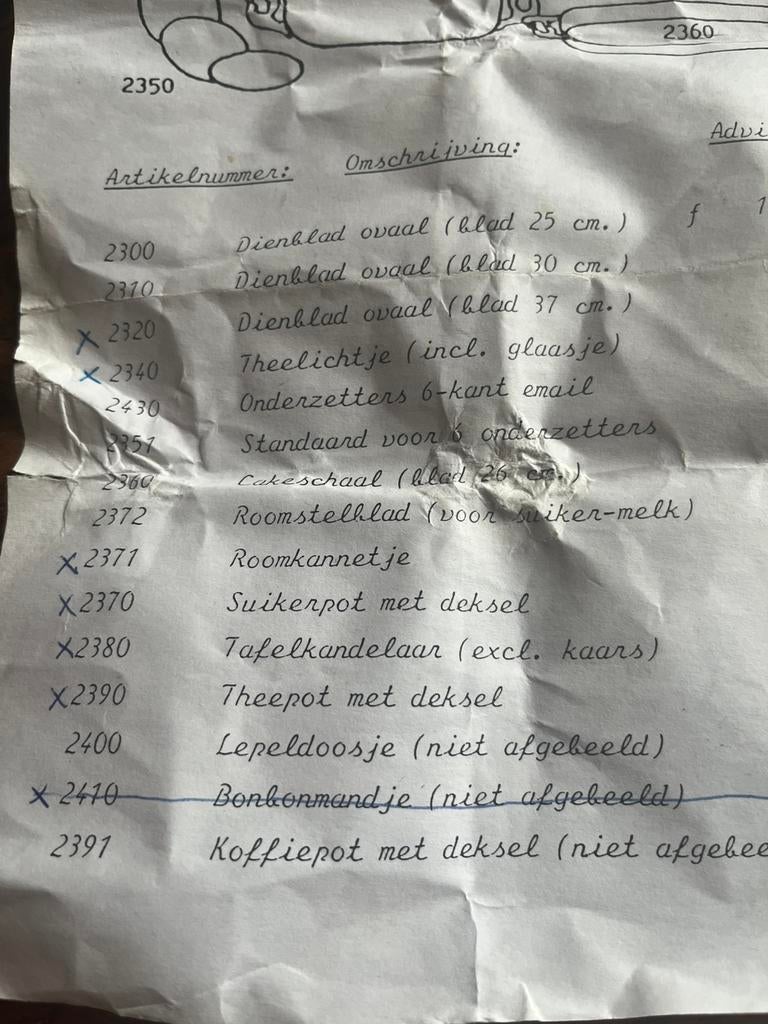 2360
2350
Artikelnummer: Omschrijving: Advi
2300 Dienblad ovaal (blad 25 cm.) f 1
2310 Dienblad ovaal (blad 30 cm.)
x 2320 Dienblad ovaal (blad 37 cm.)
x 2340 Theelichtje (incl. glaasje)
2430 Onderzetters 6-kant email
2351 Standaard voor 6 onderzetters
2360 Cakeschaal (blad 26 cm.)
2372 Roomstelblad (voor suiker-melk)
x 2371 Roomkannetje
x 2370 Suikerpot met deksel
x 2380 Tafelkandelaar (excl. kaars)
x 2390 Theepot met deksel
2400 Lepeldoosje (niet afgebeeld)
x 2410 Bonbonmandje (niet afgebeeld)
2391 Koffiepot met deksel (niet afgebee